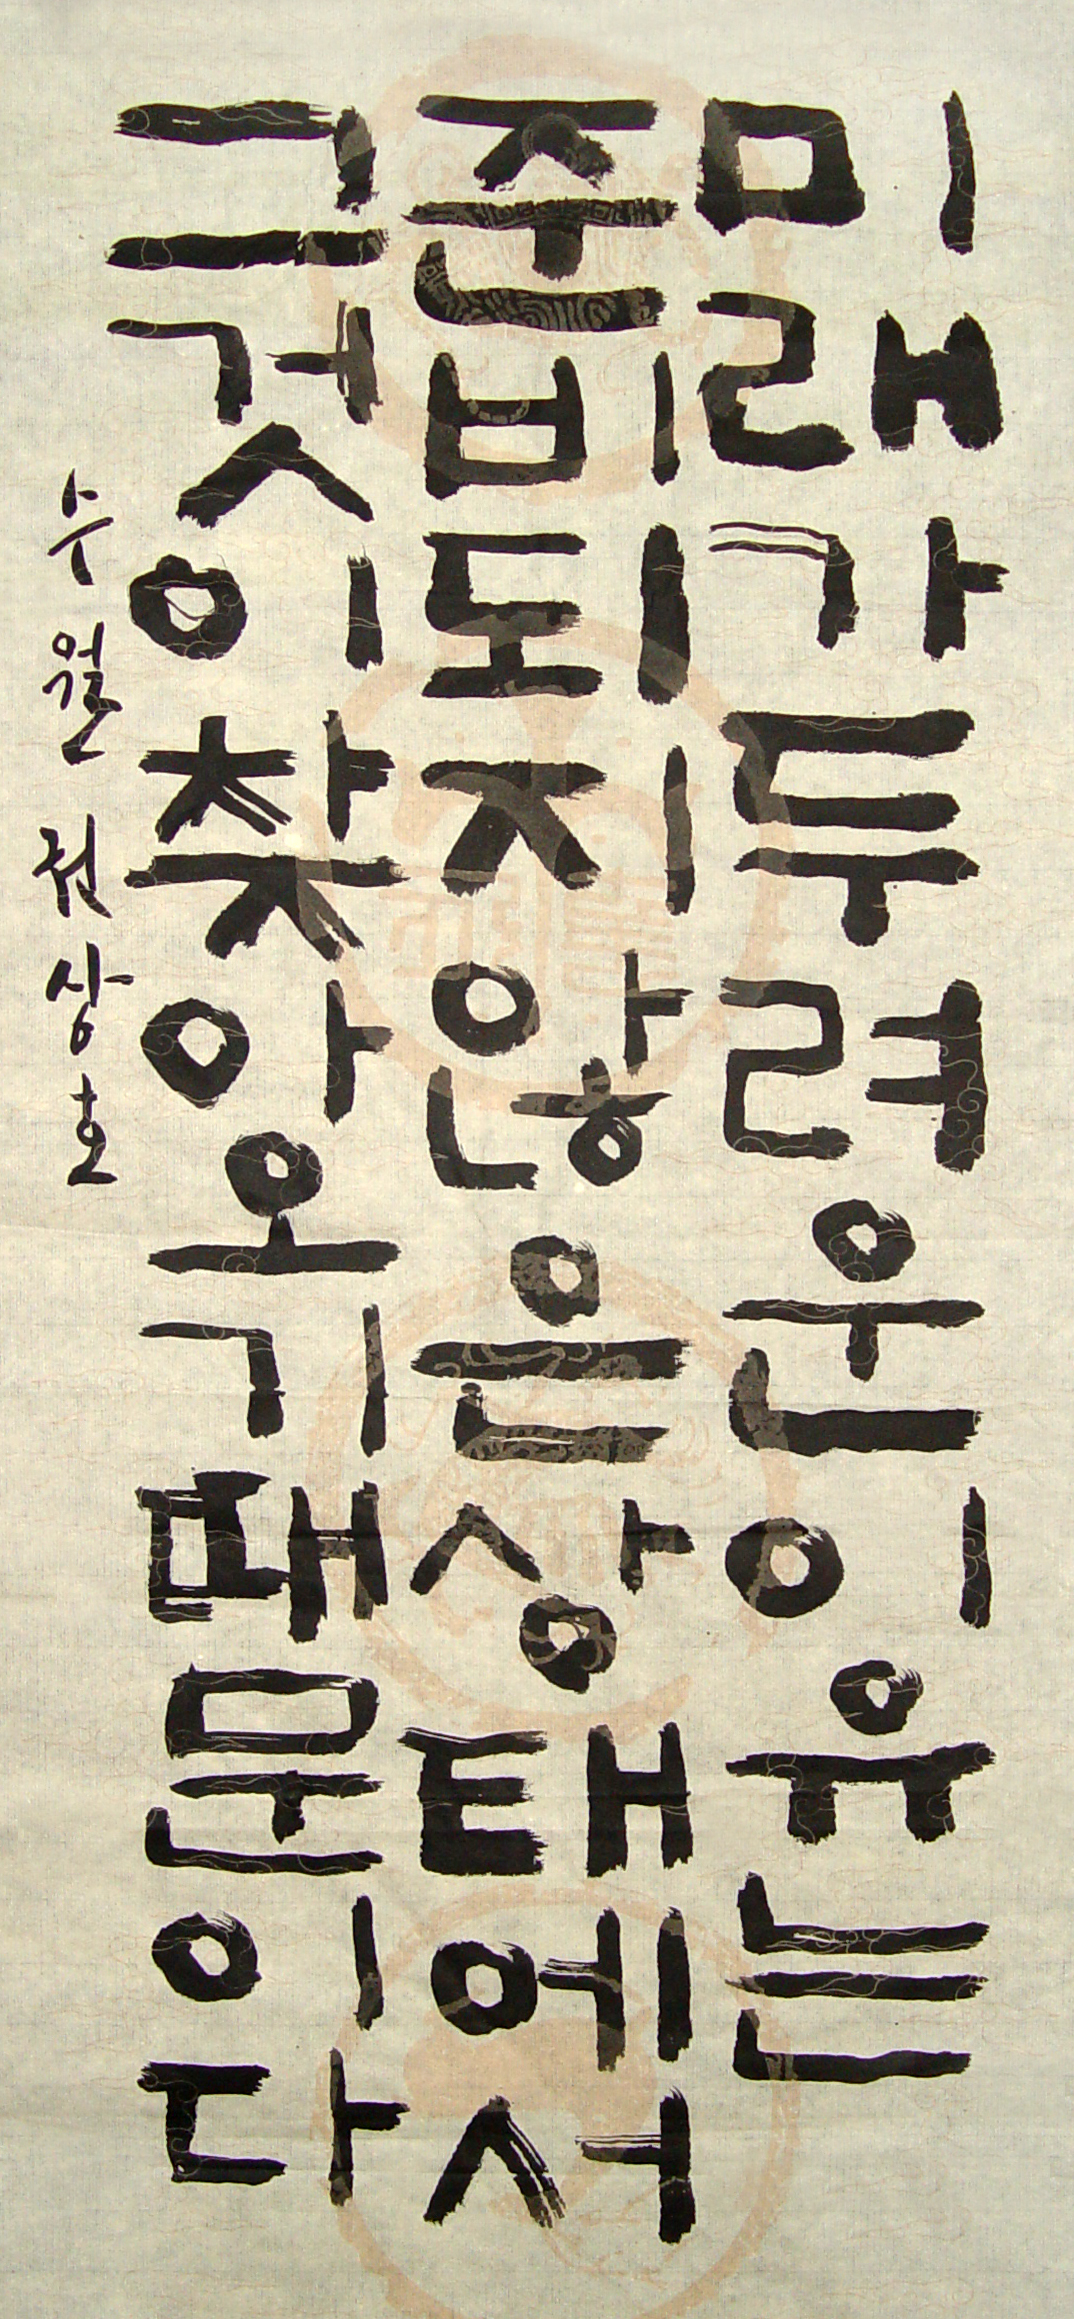 미래가두려운이유는
준비되지않은상태에서
그것이찾아오기때문이다
수월권상호